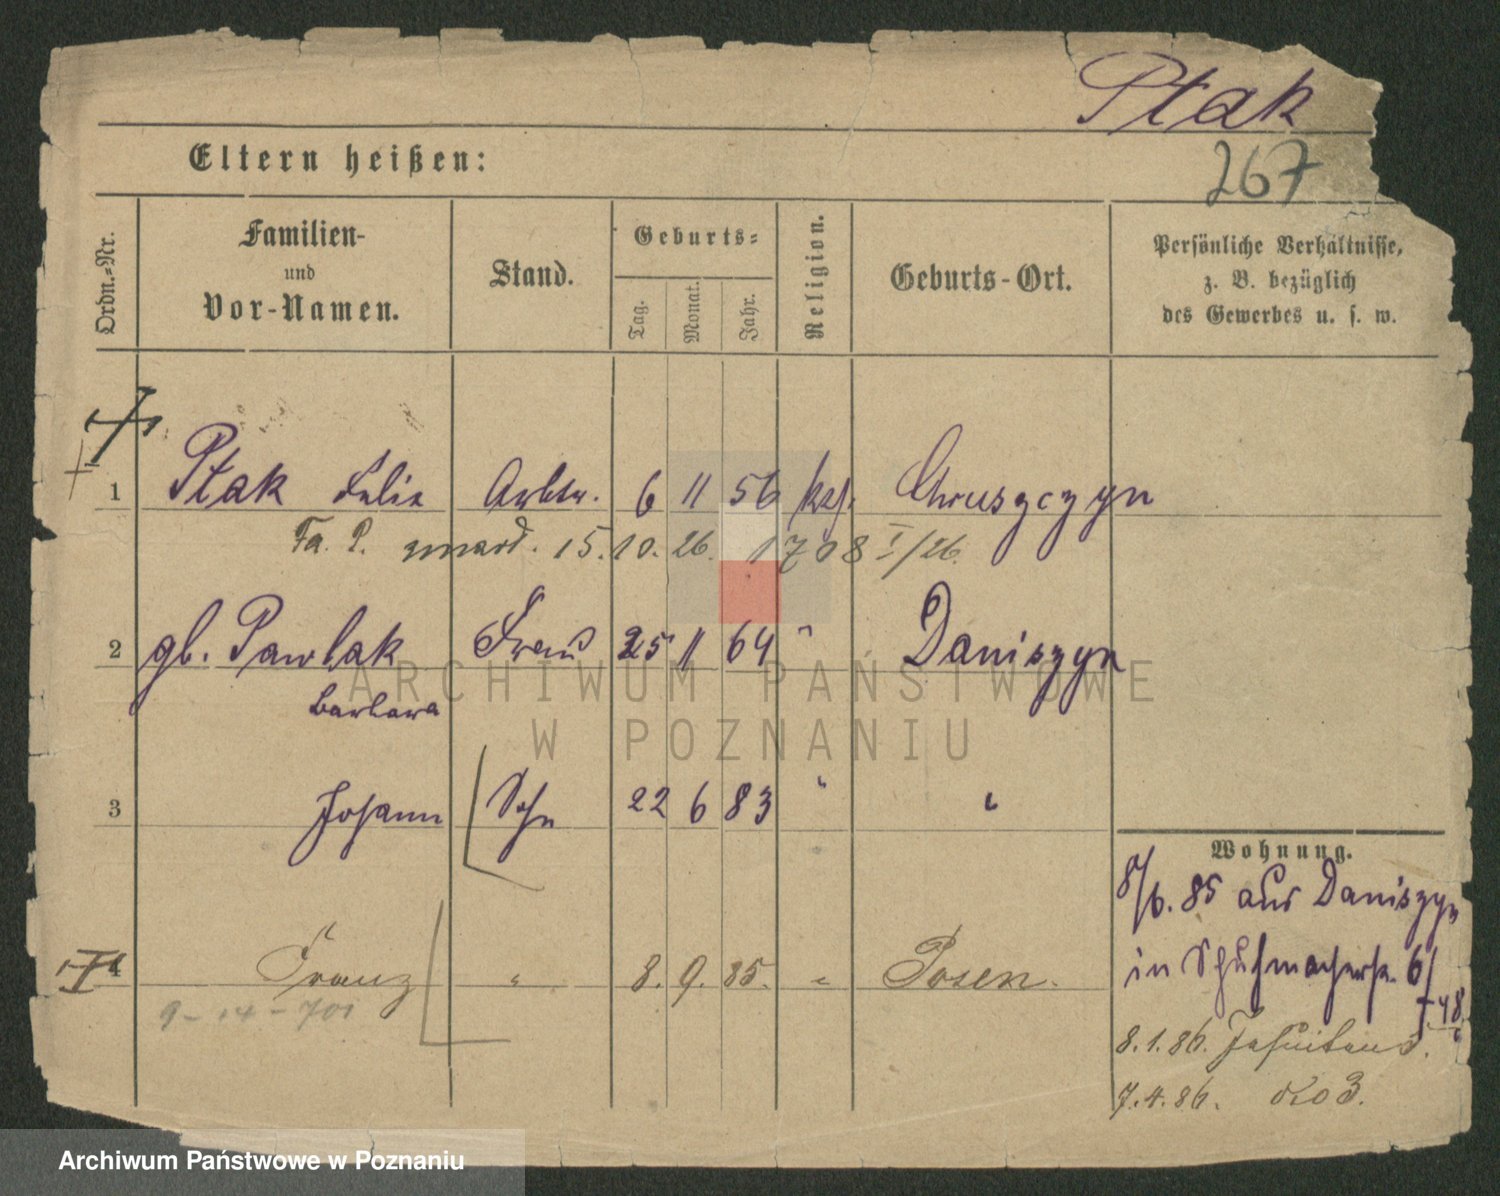 Ptak
267
Eltern heißen:
Ordn.-Nr.
Familien- und Vor-Namen.
Stand.
Geburts-
Tag. Monat. Jahr.
Religion.
Geburts-Ort.
Persönliche Verhältnisse, z. B. bezüglich des Gewerbes u. s. w.
1 Ptak Felix Arbtr. 6 11 56 Chruszczyn
Fa. P. 15.10.26. 1708 I/26.
2 gb. Pawlak Frau 25 11 64 " Daniszyn
Barbara
3 Johann Sohn 22 6 83 " "
4 Franz " 8. 9. 85. " Posen.
9-14-701
Wohnung.
8/6. 85 aus Daniszyn
in Schuhmacherstr. 6
8.1.86. Jesuitenstr. 5.
7.4.86. do 3.
ARCHIWUM PAŃSTWOWE
W POZNANIU
Archiwum Państwowe w Poznaniu